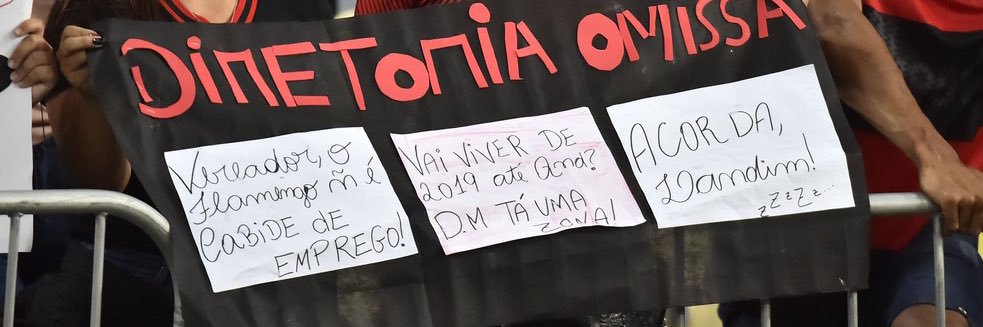 DIRETORIA OMISSA
Vereador, o
Flamengo ñ é
CABIDE DE
EMPREGO!
VAI VIVER DE
2019 até QND?
D.M TÁ UMA
ZONA!
ACORDA,
Landim!
zzzz...